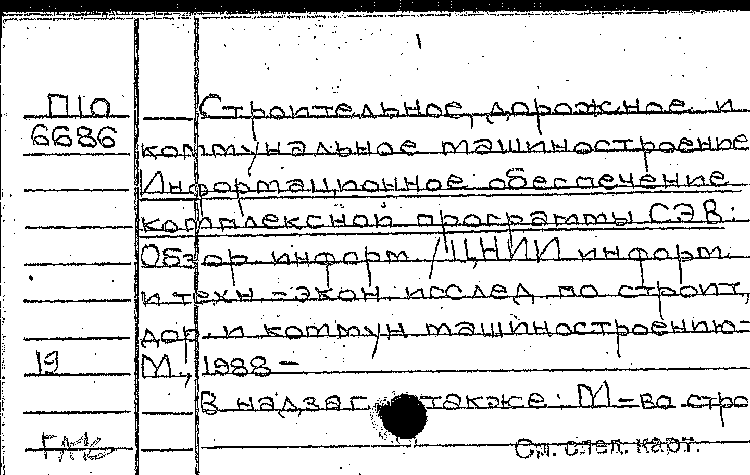 П10
6686
Строительное, дорожное и
коммунальное машиностроение.
Информационное обеспечение
комплексной программы СЭВ:
Обзор. информ. / ЦНИИ информ.
и техн.-экон. исслед. по строит.,
дор. и коммун. машиностроению.-
19
М., 1988-
В надзаг. также: М-во стро
См. след. карт.